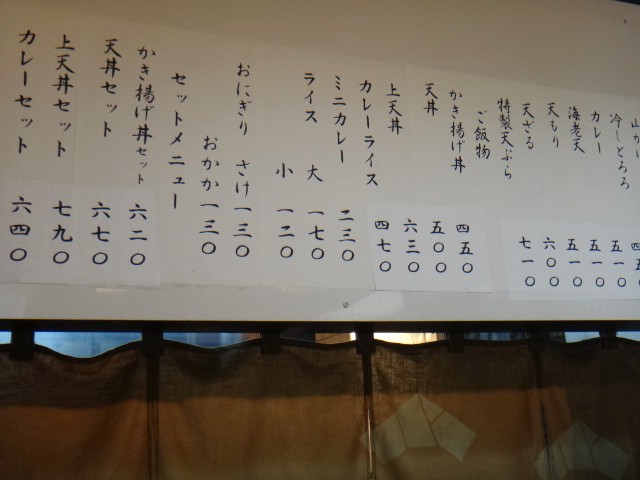 山か 四五
冷しとろろ 五一〇
カレー 五一〇
海老天 五一〇
天もり 六〇〇
天ざる 七一〇
特製天ぷら
ご飯物
かき揚げ丼 四五〇
天丼 五〇〇
上天丼 六三〇
カレーライス 四七〇
ミニカレー 二三〇
ライス 大 一七〇
小 一二〇
おにぎり さけ 一三〇
おかか 一三〇
セットメニュー
かき揚げ丼セット 六二〇
天丼セット 六七〇
上天丼セット 七九〇
カレーセット 六四〇